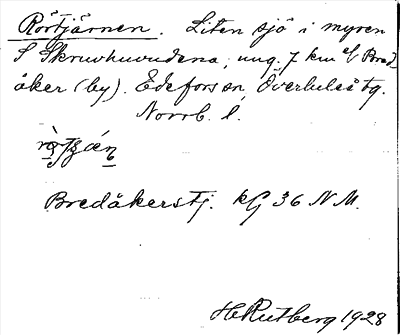 Rörtjärnen. Liten sjö i myren
S Skruvhuvudena, ung. 7 km
åker (by). Edefors sn, Överluleå tg.
Norrb. l.
Bredåkerstj. kG 36 NM.
HRutberg 1928